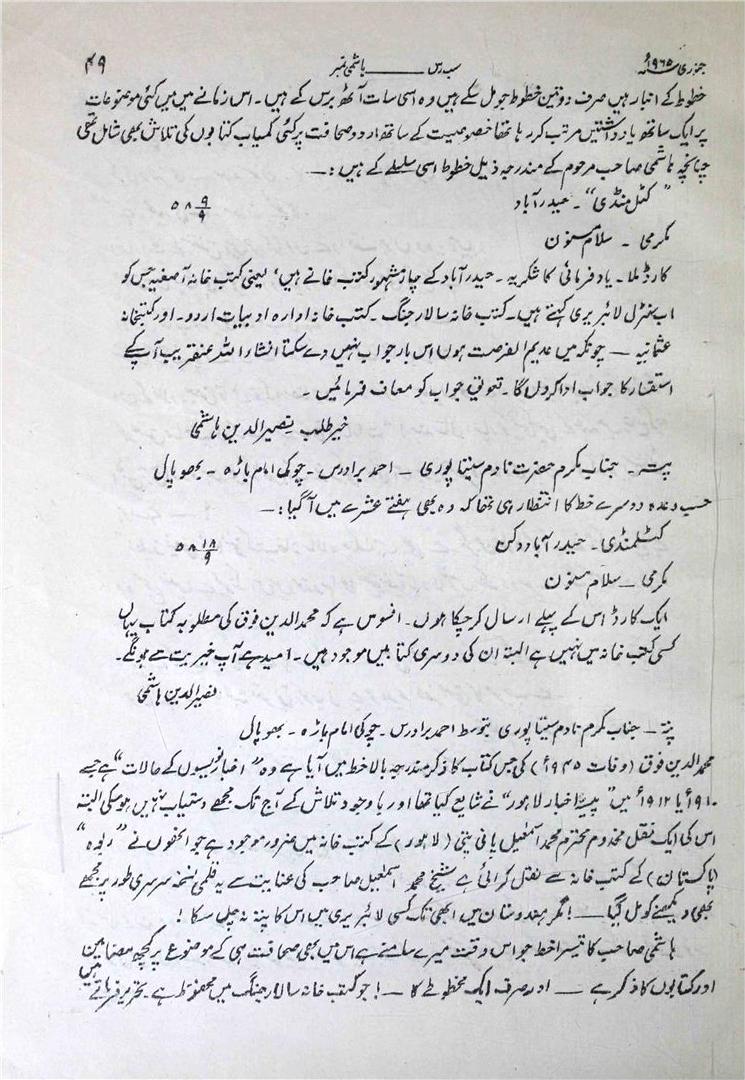 جنوری ۱۹۶۵ء سب رس ــــــ ہاشمی نمبر ۴۹
خطوط کے انبار ہیں صرف دو تین خطوط جو مل سکے ہیں وہ اسی سات آٹھ برس کے ہیں۔ اس زمانے میں میں کئی موضوعات
پر ایک ساتھ یادداشتیں مرتب کر رہا تھا خصوصیت کے ساتھ اردو صحافت پر کئی کمیاب کتابوں کی تلاش بھی شامل تھی
چنانچہ ہاشمی صاحب مرحوم کے مندرجہ ذیل خطوط اسی سلسلے کے ہیں :۔
" کٹل منڈی" ۔ حیدرآباد ۹/۹ ۵۸
مکرمی ۔ سلام مسنون
کارڈ ملا ۔ یاد فرمائی کا شکریہ ۔ حیدرآباد کے چار مشہور کتب خانے ہیں، یعنی کتب خانہ آصفیہ جس کو
اب سنٹرل لائبریری کہتے ہیں۔ کتب خانہ سالار جنگ ۔ کتب خانہ ادارہ ادبیات اردو۔ اور کتبخانہ
عثمانیہ ــ چونکہ میں عدیم الفرصت ہوں اس بار جواب نہیں دے سکتا انشاء اللہ عنقریب آپ کے
استفسار کا جواب ادا کروں گا ۔ تعویق جواب کو معاف فرمائیں ۔
خیر طلب نصیر الدین ہاشمی
پتہ ۔ جناب مکرم حضرت نادم سیتا پوری ــ احمد برادرس ۔ چوکی امام باڑہ ۔ بھوپال
حسب وعدہ دوسرے خط کا انتظار ہی تھا کہ وہ بھی ہفتے عشرے میں آگیا :۔
کٹلمنڈی ۔ حیدرآباد دکن ۱۸/۹ ۵۸
مکرمی ــ سلام مسنون
ایک کارڈ اس کے پہلے ارسال کر چکا ہوں ۔ افسوس ہے کہ محمد الدین فوق کی مطلوبہ کتاب یہاں
کسی کتب خانہ میں نہیں ہے البتہ ان کی دوسری کتابیں موجود ہیں ۔ امید ہے آپ خیریت سے ہونگے ۔
نصیر الدین ہاشمی
پتہ ــ جناب مکرم نادم سیتا پوری بتوسط احمد برادرس ۔ چوکی امام باڑہ ۔ بھوپال
محمد الدین فوق (وفات ۱۹۴۵ء) کی جس کتاب کا ذکر مندرجہ بالا خط میں آیا ہے وہ " اخبار نویسوں کے حالات" ہے جسے
۱۹۱۰ء یا ۱۹۱۲ء میں " پیسہ اخبار لاہور" نے شایع کیا تھا اور باوجود تلاش کے آج تک مجھے دستیاب نہیں ہو سکی البتہ
اس کی ایک نقل مخدوم محترم محمد اسمعیل پانی پتی (لاہور) کے کتب خانہ میں ضرور موجود ہے جو انھوں نے " ربوہ "
(پاکستان) کے کتب خانہ سے نقل کرائی ہے شیخ محمد اسمعیل صاحب کی عنایت سے یہ قلمی نسخہ سرسری طور پر مجھے
بھی دیکھنے کو مل گیا ــ ! مگر ہندوستان میں ابھی تک کسی لائبریری میں اس کا پتہ نہ چل سکا !
ہاشمی صاحب کا تیسرا خط جو اس وقت میرے سامنے ہے اس میں بھی صحافت ہی کے موضوع پر کچھ مضامین
اور کتابوں کا ذکر ہے ــ اور صرف ایک مخطوطے کا ــ ! جو کتب خانہ سالار جنگ میں محفوظ ہے۔ تحریر فرماتے ہیں